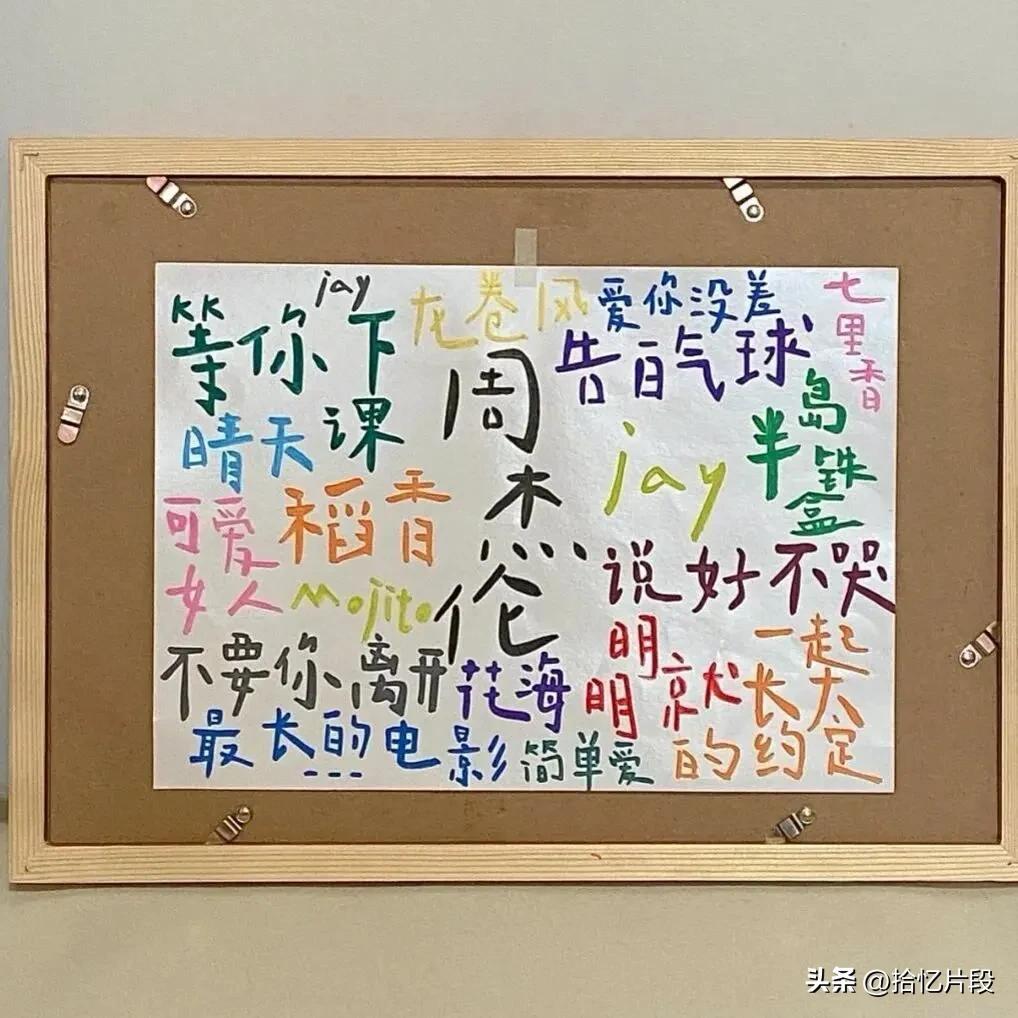 jay
等你下课
龙卷风
爱你没差
七里香
告白气球
周杰伦
晴天
jay
半岛铁盒
可爱女人
稻香
mojito
说好不哭
不要你离开
花海
明明就
一起长大的约定
最长的电影
简单爱
头条 @拾忆片段